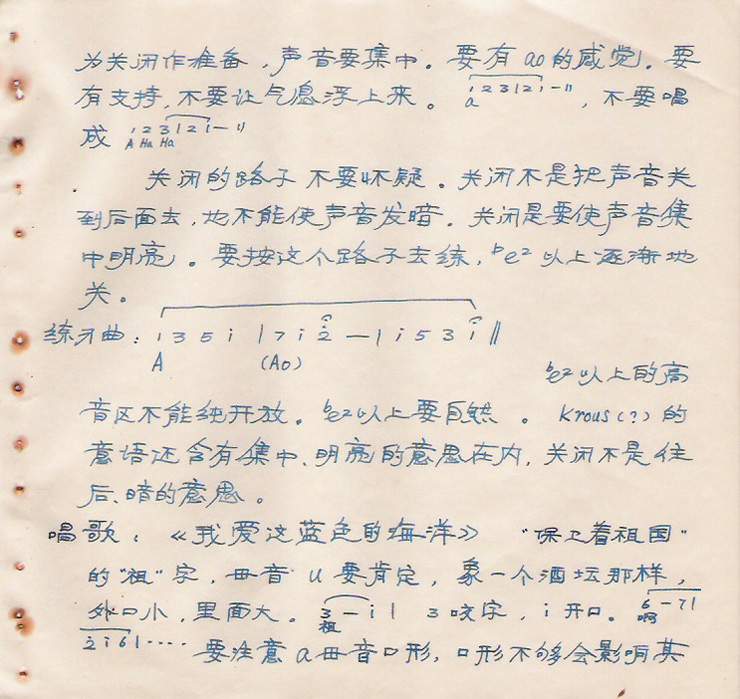 为关闭作准备，声音要集中。要有ao的感觉。要
有支持，不要让气息浮上来。 1 2 3 | 2 1 - || a ，不要唱
成 1 2 3 | 2 1 - || A Ha Ha
关闭的路子不要怀疑。关闭不是把声音关
到后面去，也不能使声音发暗。关闭是要使声音集
中明亮。要按这个路子去练，be²以上逐渐地
关。
练习曲：1 3 5 i | 7 i 2 — | i 5 3 i ||
A (Ao)
be²以上的高
音区不能纯开放。be²以上要自然。Krous(?)的
意语还含有集中、明亮的意思在内，关闭不是往
后、暗的意思。
唱歌：《我爱这蓝色的海洋》 "保卫着祖国"
的"祖"字，母音 u 要肯定，象一个酒坛那样，
外口小，里面大。 3 - i | 祖 3 咬字，i 开口。 6 - 7 | 啊
2 i 6 | ···· 要注意 a 母音口形，口形不够会影响其